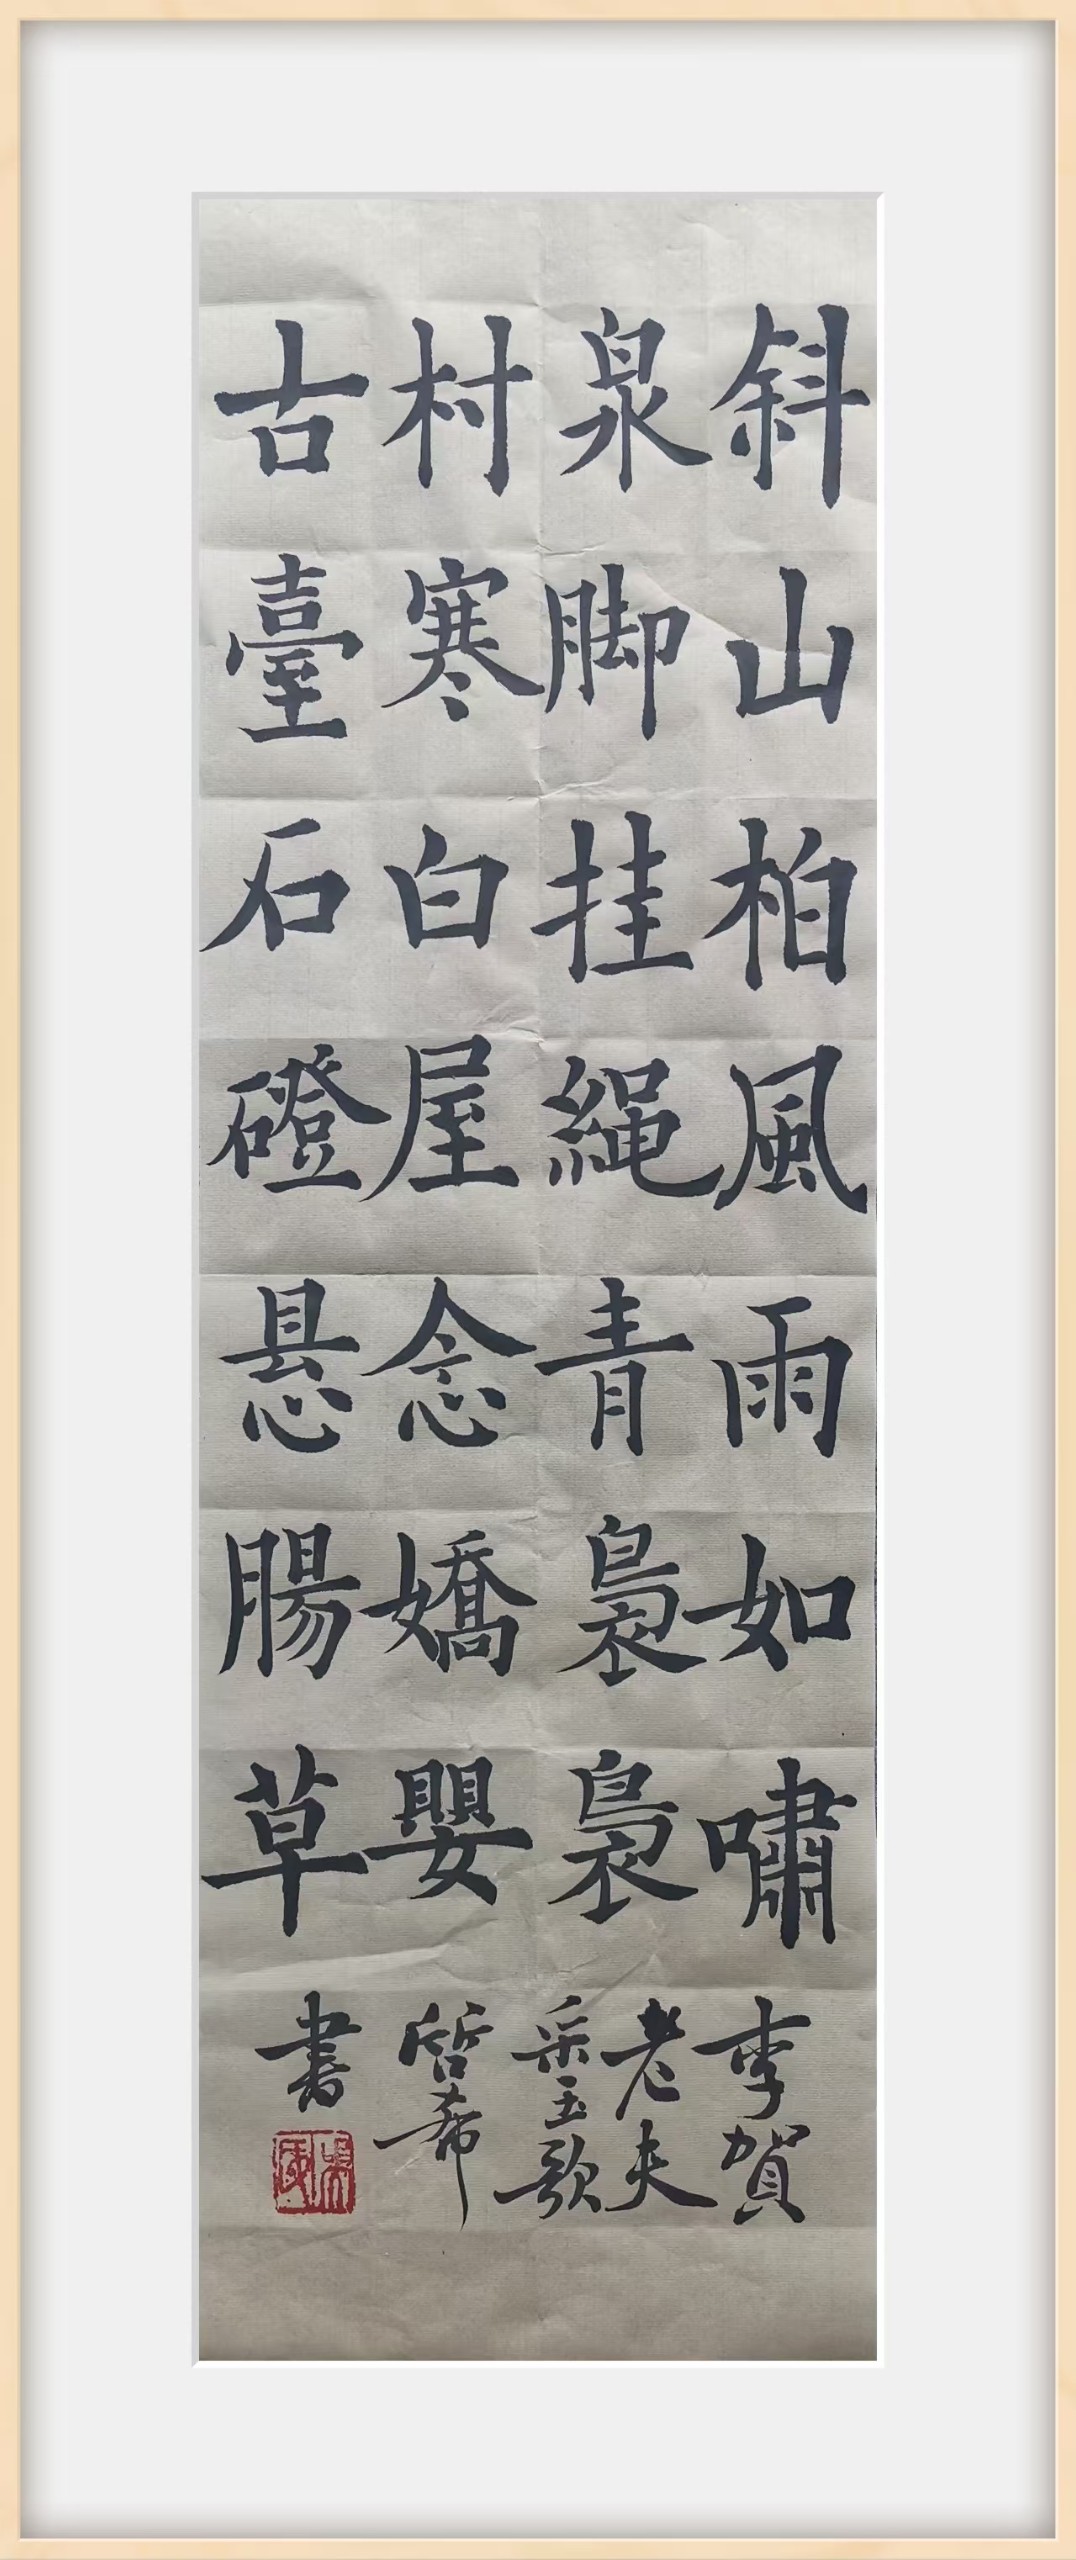 斜山柏風雨如嘯
泉脚挂繩青裊裊
村寒白屋念嬌嬰
古臺石磴悬腸草
李賀
老夫
采玉歌
哲希
書